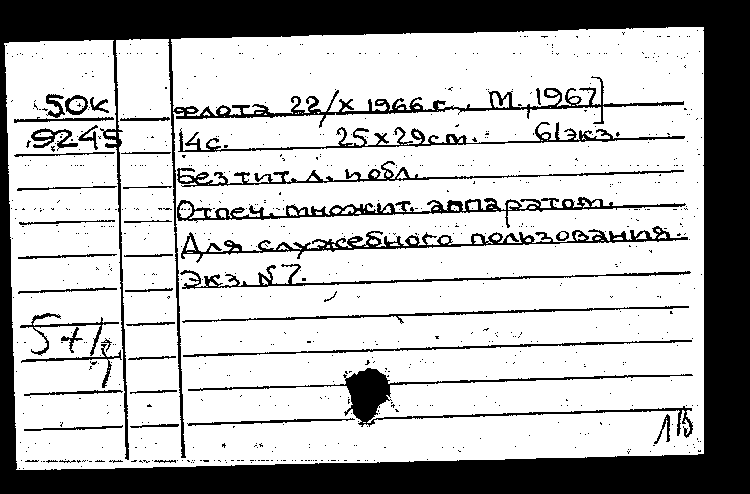 50к флота 22/X 1966 г., М., 1967]
9245 14с. 25х29см. 61экз.
Без тит. л. и обл.
Отпеч. множит. аппаратом.
Для служебного пользования.
Экз. №7.